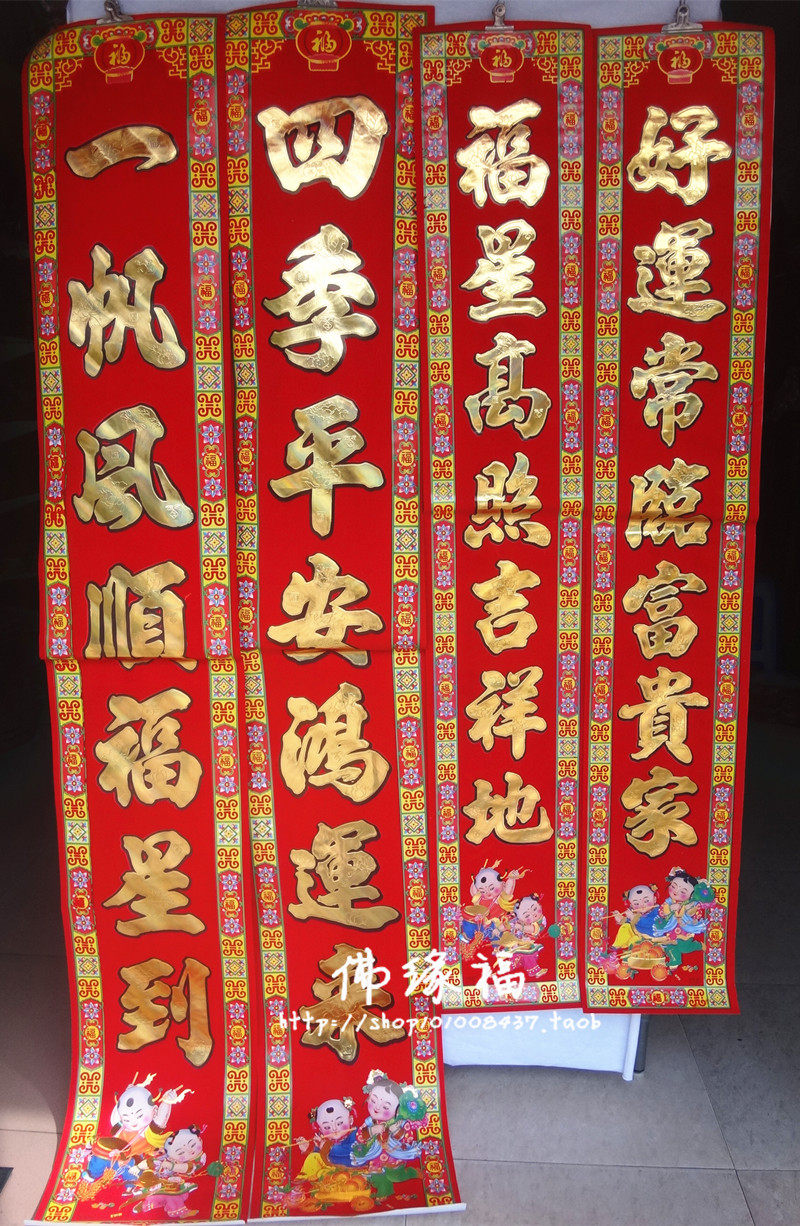 一帆风順福星到
四季平安鴻運来
福星高照吉祥地
好運常臨富貴家
福
福
福
福
佛缘福
http://shop101008437.taob